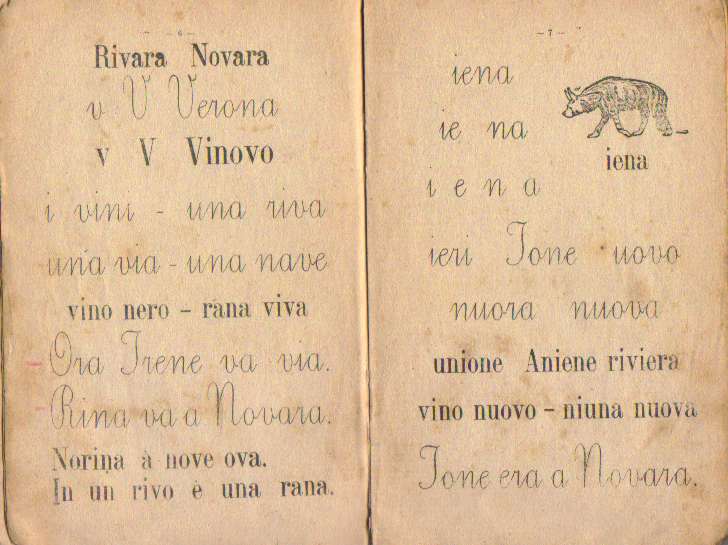 - 6 -
Rivara Novara
v V Verona
v V Vinovo
i vini - una riva
una via - una nave
vino nero - rana viva
Ora Irene va via.
Rina va a Novara.
Norina à nove ova.
In un rivo è una rana.
- 7 -
iena
ie na
iena
i e n a
ieri Ione uovo
nuora nuova
unione Aniene riviera
vino nuovo - niuna nuova
Ione era a Novara.